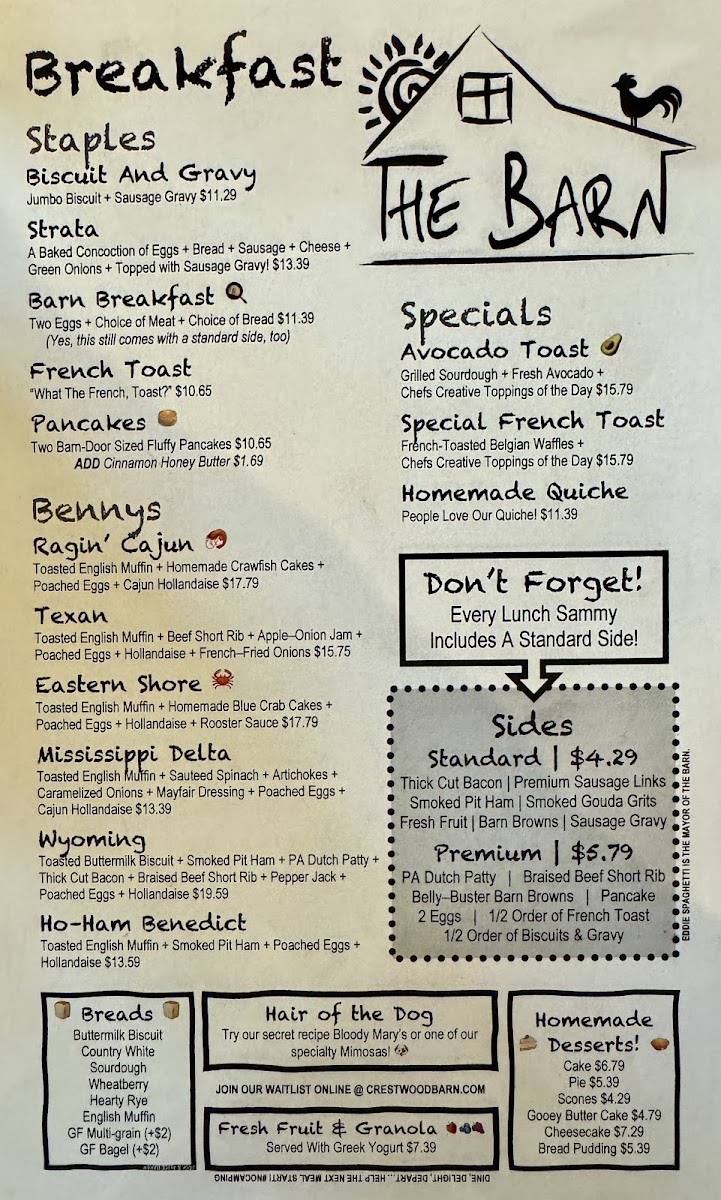 Breakfast
THE BARN
Staples
Biscuit And Gravy
Jumbo Biscuit + Sausage Gravy $11.29
Strata
A Baked Concoction of Eggs + Bread + Sausage + Cheese +
Green Onions + Topped with Sausage Gravy! $13.39
Barn Breakfast
Two Eggs + Choice of Meat + Choice of Bread $11.39
(Yes, this still comes with a standard side, too)
French Toast
"What The French, Toast?" $10.65
Pancakes
Two Barn-Door Sized Fluffy Pancakes $10.65
ADD Cinnamon Honey Butter $1.69
Bennys
Ragin' Cajun
Toasted English Muffin + Homemade Crawfish Cakes +
Poached Eggs + Cajun Hollandaise $17.79
Texan
Toasted English Muffin + Beef Short Rib + Apple–Onion Jam +
Poached Eggs + Hollandaise + French–Fried Onions $15.75
Eastern Shore
Toasted English Muffin + Homemade Blue Crab Cakes +
Poached Eggs + Hollandaise + Rooster Sauce $17.79
Mississippi Delta
Toasted English Muffin + Sauteed Spinach + Artichokes +
Caramelized Onions + Mayfair Dressing + Poached Eggs +
Cajun Hollandaise $13.39
Wyoming
Toasted Buttermilk Biscuit + Smoked Pit Ham + PA Dutch Patty +
Thick Cut Bacon + Braised Beef Short Rib + Pepper Jack +
Poached Eggs + Hollandaise $19.59
Ho-Ham Benedict
Toasted English Muffin + Smoked Pit Ham + Poached Eggs +
Hollandaise $13.59
Specials
Avocado Toast
Grilled Sourdough + Fresh Avocado +
Chefs Creative Toppings of the Day $15.79
Special French Toast
French-Toasted Belgian Waffles +
Chefs Creative Toppings of the Day $15.79
Homemade Quiche
People Love Our Quiche! $11.39
Don't Forget!
Every Lunch Sammy
Includes A Standard Side!
Sides
Standard | $4.29
Thick Cut Bacon | Premium Sausage Links
Smoked Pit Ham | Smoked Gouda Grits
Fresh Fruit | Barn Browns | Sausage Gravy
Premium | $5.79
PA Dutch Patty | Braised Beef Short Rib
Belly–Buster Barn Browns | Pancake
2 Eggs | 1/2 Order of French Toast
1/2 Order of Biscuits & Gravy
EDDIE SPAGHETTI IS THE MAYOR OF THE BARN.
Breads
Buttermilk Biscuit
Country White
Sourdough
Wheatberry
Hearty Rye
English Muffin
GF Multi-grain (+$2)
GF Bagel (+$2)
Hair of the Dog
Try our secret recipe Bloody Mary's or one of our
specialty Mimosas!
JOIN OUR WAITLIST ONLINE @ CRESTWOODBARN.COM
Fresh Fruit & Granola
Served With Greek Yogurt $7.39
Homemade
Desserts!
Cake $6.79
Pie $5.39
Scones $4.29
Gooey Butter Cake $4.79
Cheesecake $7.29
Bread Pudding $5.39
DINE, DELIGHT, DEPART... HELP THE NEXT MEAL START! #NOCAMPING